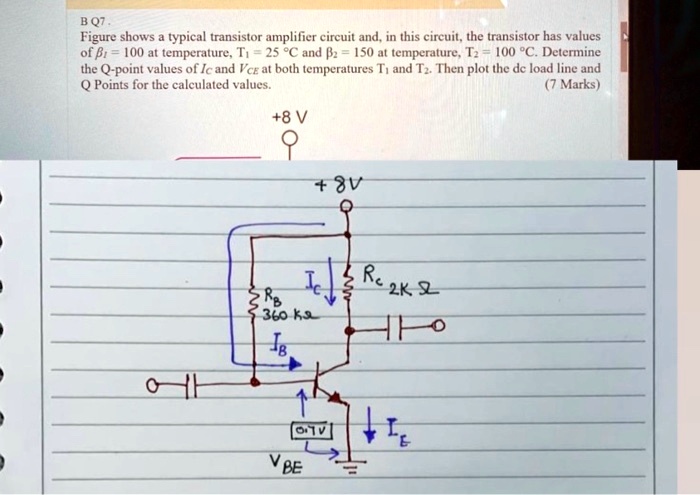 B Q7.
Figure shows a typical transistor amplifier circuit and, in this circuit, the transistor has values
of β1 = 100 at temperature, T1 = 25 °C and β2 = 150 at temperature, T2 = 100 °C. Determine
the Q-point values of IC and VCE at both temperatures T1 and T2. Then plot the dc load line and
Q Points for the calculated values. (7 Marks)
+8 V
+ 8V
IC
RC 2K Ω
RB
360 KΩ
IB
0.7V
IE
VBE